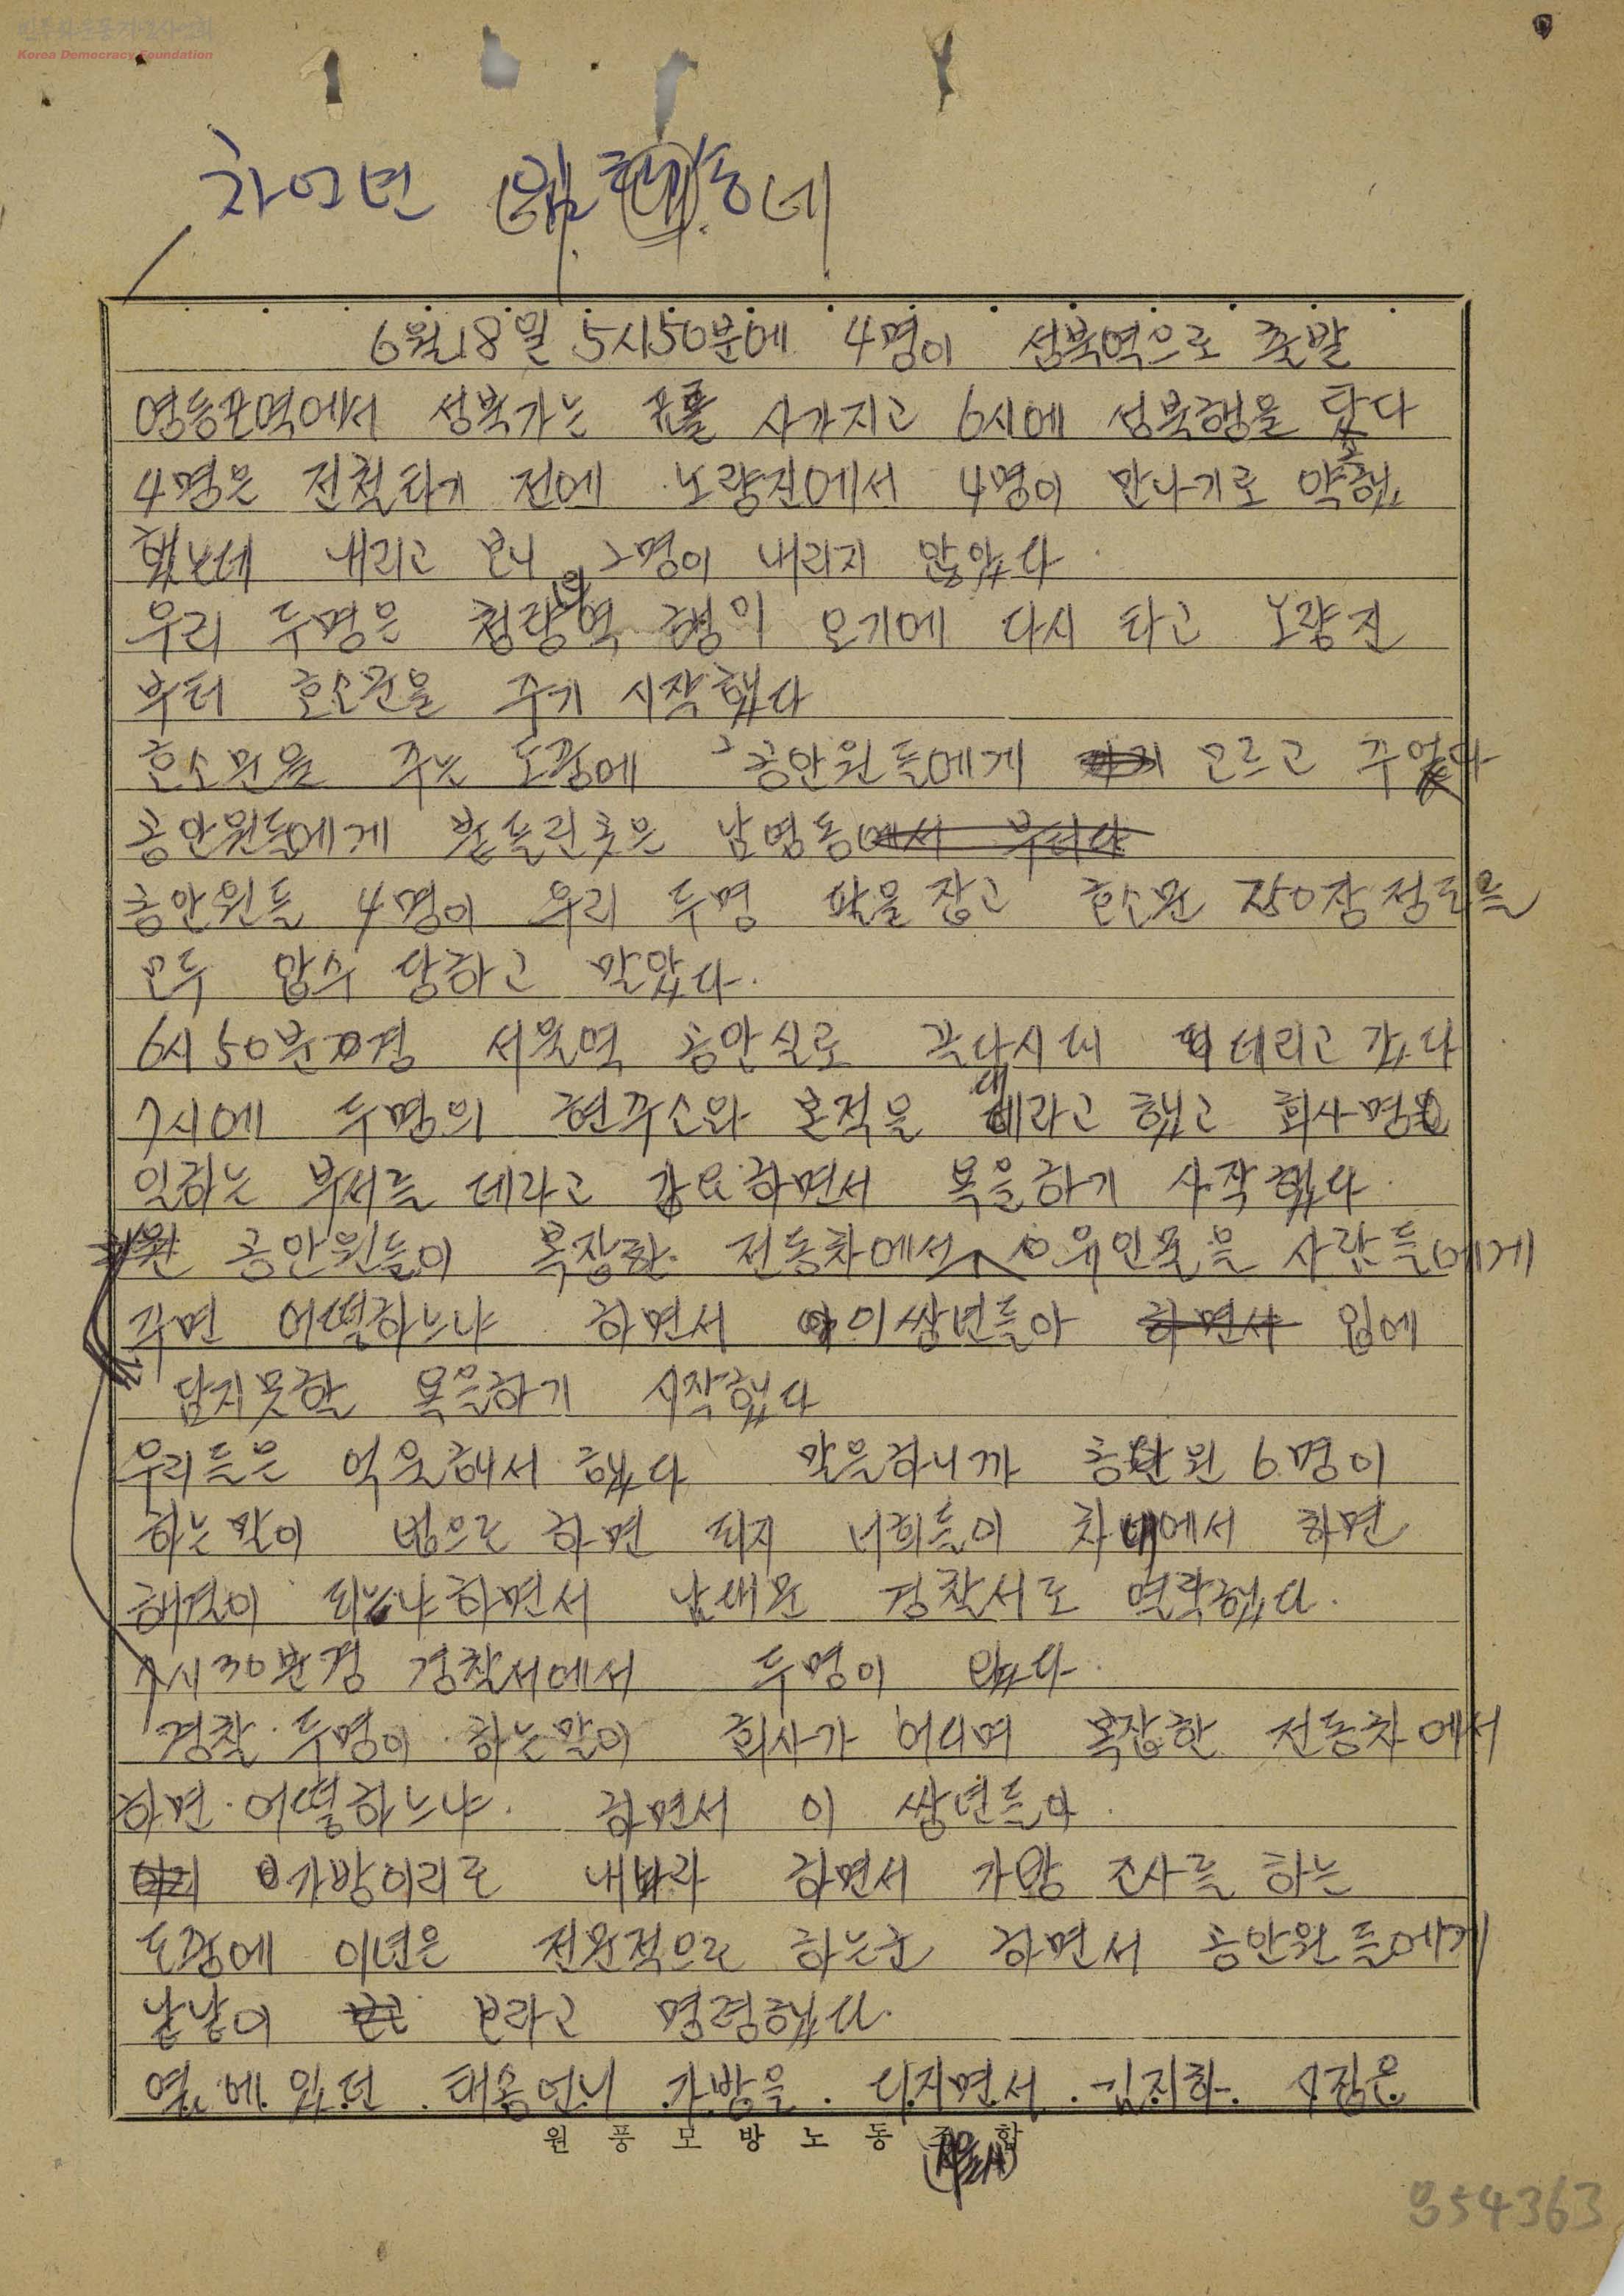 민주화운동기념사업회
Korea Democracy Foundation
차언년
6월18일 5시50분에 4명이 성북역으로 출발
영등포역에서 성북가는 표를 사가지고 6시에 성북행을 탔다
4명은 전철타기 전에 노량진에서 4명이 만나기로 약속
했는데 내리고 보니 2명이 내리지 않았다
우리 두명은 청량의역 행이 오기에 다시 타고 노량진
부터 호소문을 주기 시작했다
호소문을 주는 도중에 공안원들에게 모르고 주었다
공안원들에게 붙들린곳은 남영동에서 부터다
공안원들 4명이 우리 두명 팔을 잡고 호소문 장정도를
모두 압수 당하고 말았다.
6시 50분경 서울역 공안실로 끌다시피 데리고 갔다
7시에 두명의 현주소와 본적을 대라고 했고 회사명
일하는 부서를 데라고 강요하면서 욕을하기 시작했다.
공안원들이 복잡한 전동차에서 유인물을 사람들에게
주면 어떻하느냐 하면서 이쌍년들아 하면서 입에
담지못할 욕을하기 시작했다
우리들은 억울해서 했다 말을하니까 공안원 6명이
하는말이 법으로 하면 되지 너희들이 차내에서 하면
해결이 되느냐하면서 남대문 경찰서로 연락했다.
7시30분경 경찰서에서 두명이 왔다.
경찰 두명이 하는말이 회사가 어디며 복잡한 전동차에서
하면 어떻하느냐. 하면서 이 쌍년들아.
가방이리로 내놔라 하면서 가방 조사를 하는
도중에 이년은 전문적으로 하는군 하면서 공안원들에게
낱낱이 보라고 명령했다.
옆에 있던 태송언니 가방을 디지면서 김지하 시집은
원풍모방노동조합
354363